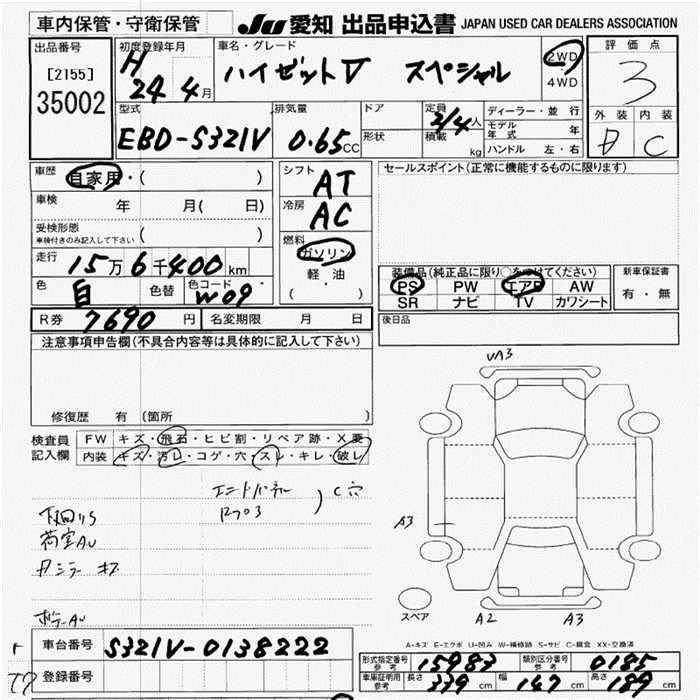 車内保管・守衛保管
JU 愛知 出品申込書 JAPAN USED CAR DEALERS ASSOCIATION
出品番号
[2155]
35002
初度登録年月
H
24 4月
車名・グレード
ハイゼットV スペシャル
2WD
4WD
評価点
3
外装 内装
D C
型式
EBD-S321V
排気量
0.65CC
ドア
形状
定員
2/4人
積載
kg
ディーラー・並行
モデル年式 年
ハンドル 左・右
車歴
自家用・( )
車検 年 月( 日)
受検形態
車検付きのみ記入して下さい ( )
走行 15万6千400km
色 白 色替 色コード W09
R券 7690円 名変期限 月 日
シフト
AT
冷房
AC
燃料
ガソリン
・
軽・油
( )
セールスポイント(正常に機能するものに限ります)
装備品(純正品に限り○をつけてください)
PS PW エアB AW
SR ナビ TV カワシート
新車保証書
有・無
後日品
注意事項申告欄(不具合内容等は具体的に記入して下さい)
修復歴 有 (箇所 )
検査員
記入欄
FW キズ・飛石・ヒビ割・リペア跡・X要
内装 キズ・汚レ・コゲ・穴・スレ・キレ・破レ
C穴
下回りS
荷室AU
キズ
AU
UA3
A3
スペア
A2 A3
A-キズ E-エクボ U-凹み W-補修跡 S-サビ C-腐食 XX-交換済
車台番号 S321V-0138222
登録番号
形式指定番号
参考
15983
類別区分番号
参考
0185
車庫証明用
参考
長さ 339cm 幅 147cm 高さ 189cm